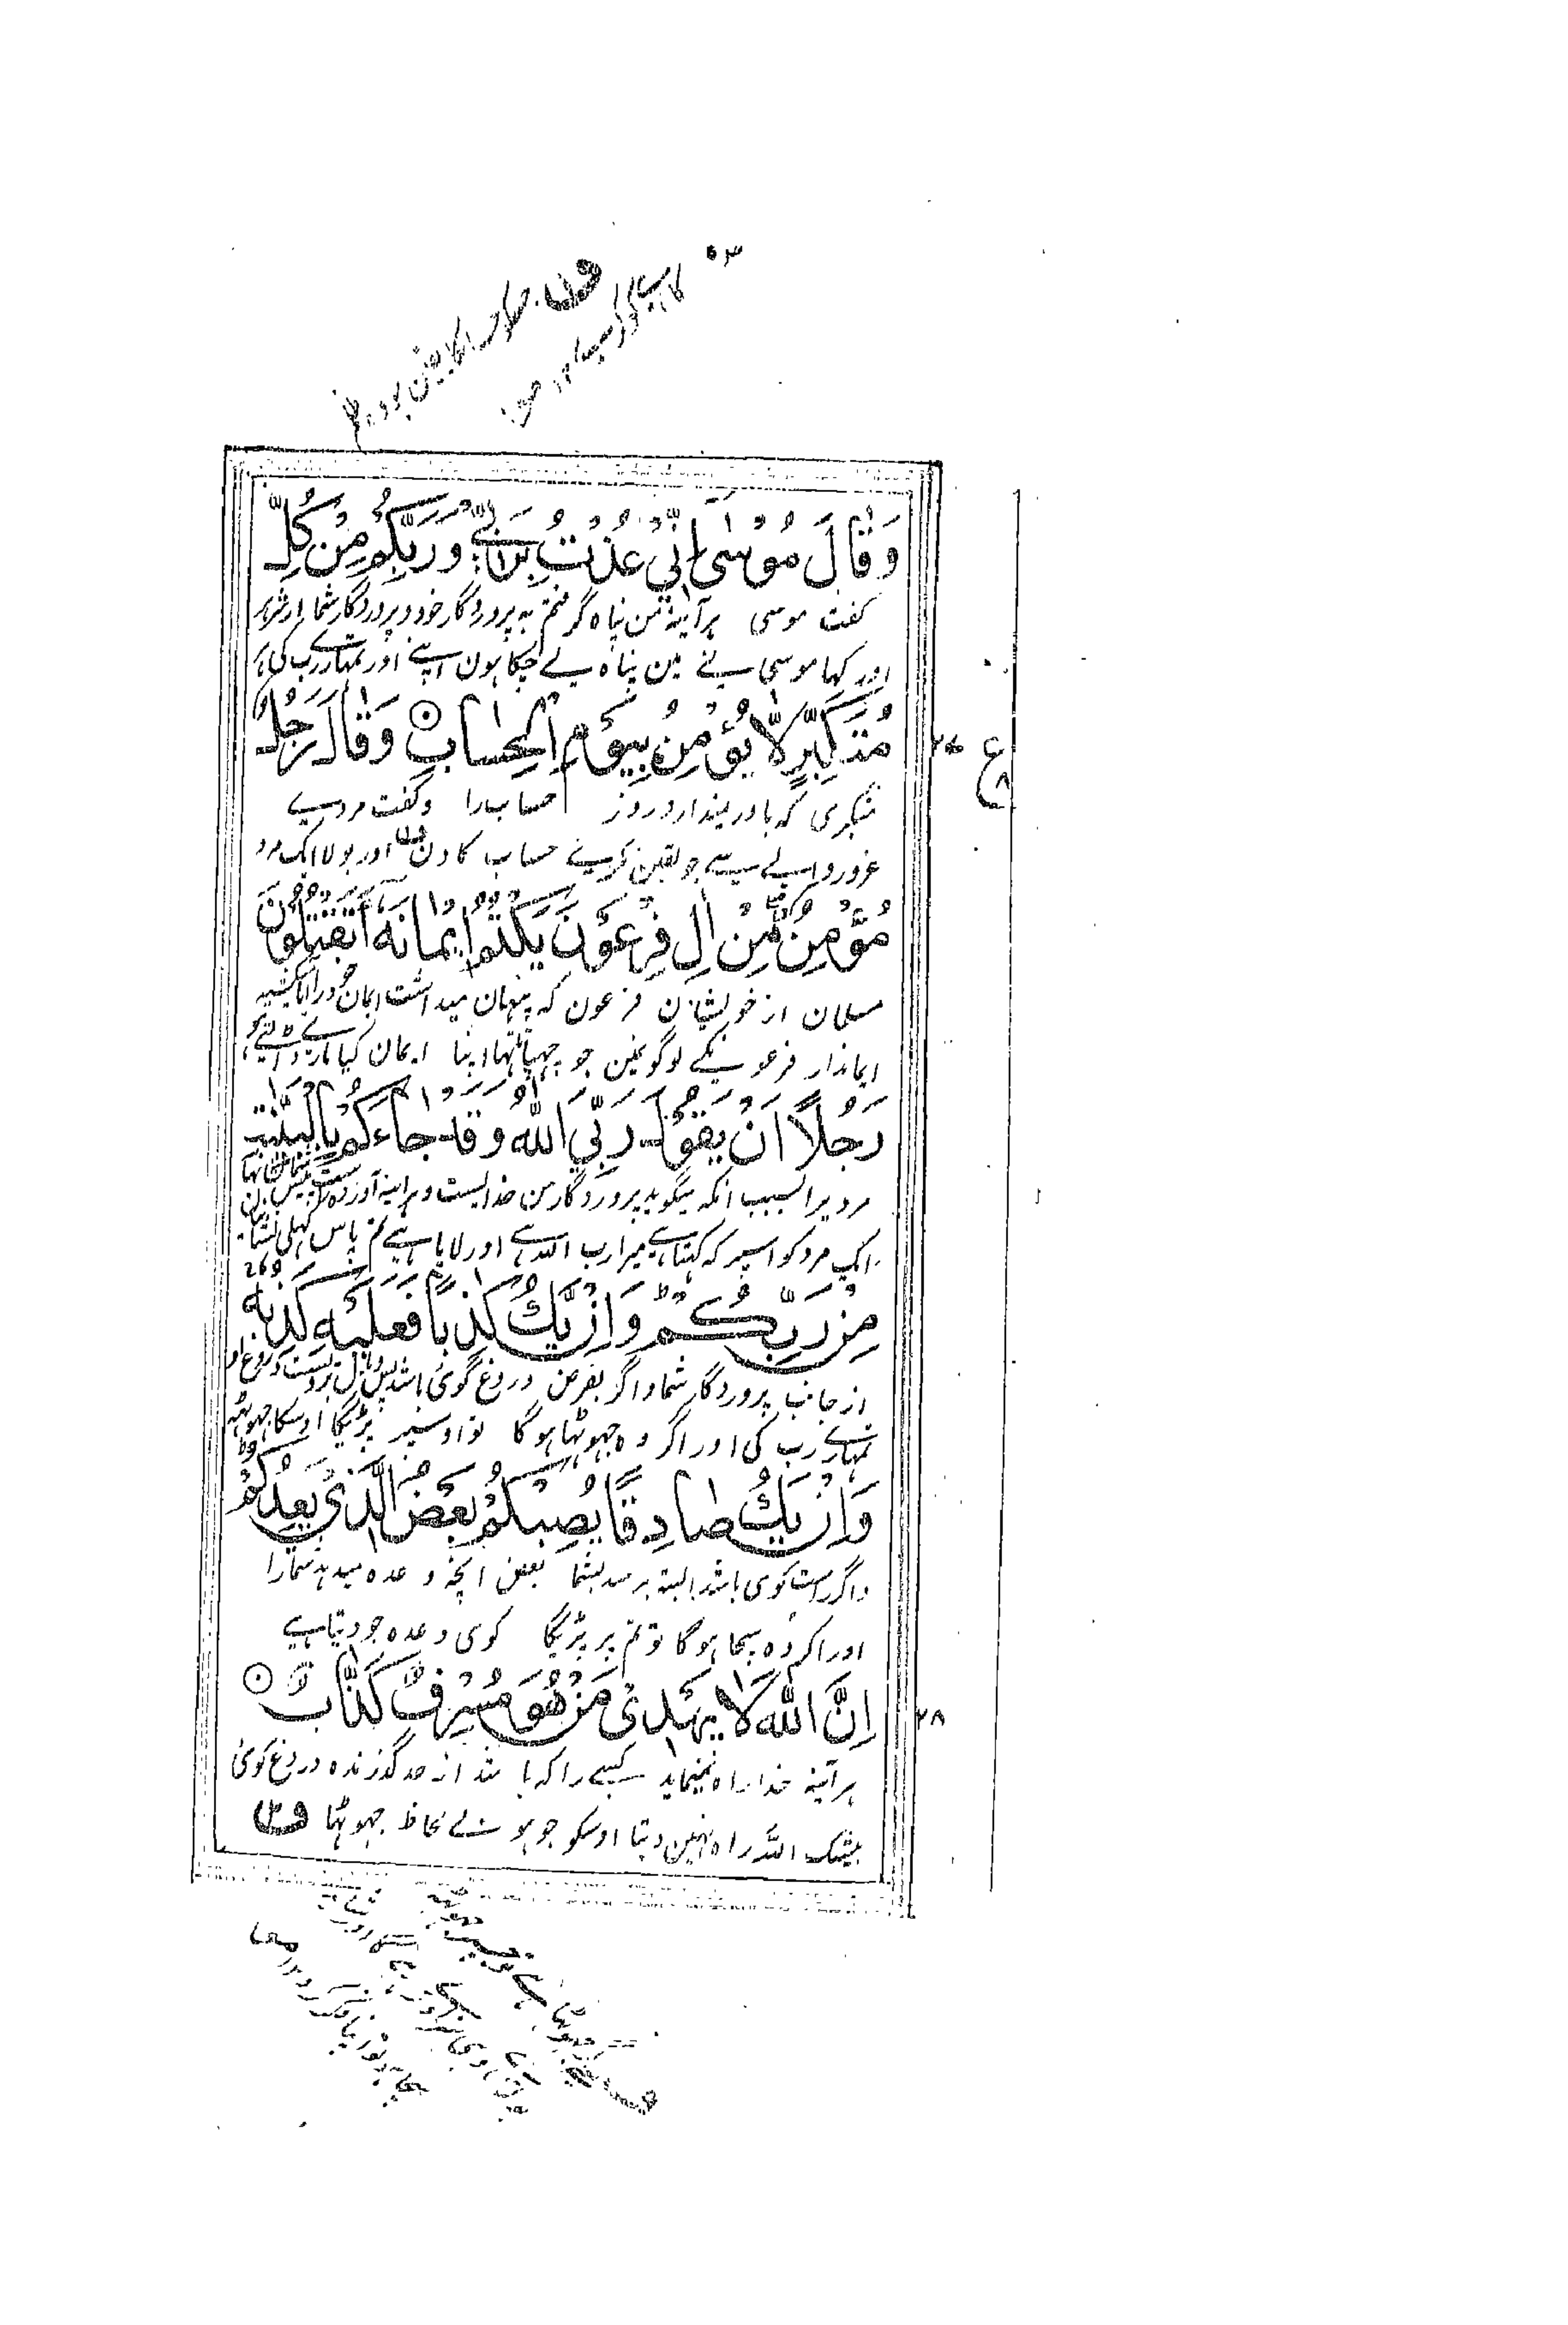 وَقَالَ مُوْسٰى اِنِّيْ عُذْتُ بِرَبِّيْ وَرَبِّكُمْ مِنْ كُلِّ
گفت موسی ہرآینہ من پناہ گرفتم بہ پروردگار خود و پروردگار شما از شر ہر
اور کہا موسی نے مین پناہ لے چکا ہون اپنے اور تمہارے رب کی
مُتَكَبِّرٍ لَّا يُؤْمِنُ بِيَوْمِ الْحِسَابِ وَقَالَ رَجُلٌ
متکبری کہ باور نمیدارد روز حساب را و گفت مردیے
غرور والے سے جو یقین نکرے حساب کا دن ف اور بولا ایک مرد
مُّؤْمِنٌ مِّنْ اٰلِ فِرْعَوْنَ يَكْتُمُ اِيْمَانَهٗ اَتَقْتُلُوْنَ
مسلمان از خویشان فرعون کہ پنہان میداشت ایمان خود را آیا میکشید
ایماندار فرعون کے لوگونمین جو چہپاتا تہا اپنا ایمان کیا مارے ڈالتے ہو
رَجُلًا اَنْ يَّقُوْلَ رَبِّيَ اللّٰهُ وَقَدْ جَاءَكُمْ بِالْبَيِّنٰتِ
مردیرا بسبب آنکہ میگوید پروردگار من خداست و ہرآینہ آوردہ است پیش شما نشانہا
ایک مرد کو اسپر کہ کہتا ہے میرا رب اللہ ہے اور لایا ہے تم پاس کہلی نشانیان
مِنْ رَّبِّكُمْ وَاِنْ يَّكُ كَاذِبًا فَعَلَيْهِ كَذِبُهٗ
از جانب پروردگار شما و اگر بفرض دروغ گوئی باشد پس وبال بروست دروغ او
تمہارے رب کی اور اگر وہ جہوٹہا ہوگا تو اوسپر پڑیگا اوسکا جہوٹہہ
وَاِنْ يَّكُ صَادِقًا يُّصِبْكُمْ بَعْضُ الَّذِيْ يَعِدُكُمْ
و اگر راست گوی باشد البتہ برسد بشما بعض آنچہ وعدہ میدہد شما را
اور اگر وہ سچا ہوگا تو تم پر پڑیگا کوی وعدہ جو دیتا ہے
اِنَّ اللّٰهَ لَا يَهْدِيْ مَنْ هُوَ مُسْرِفٌ كَذَّابٌ
ہرآینہ خدا راہ نمینماید کسے را کہ باشد از حد گذرندہ دروغ گوی
بیشک اللہ راہ نہین دیتا اوسکو جو ہو بے لحاظ جہوٹہا ف
۲۷
ع
۸
۲۸